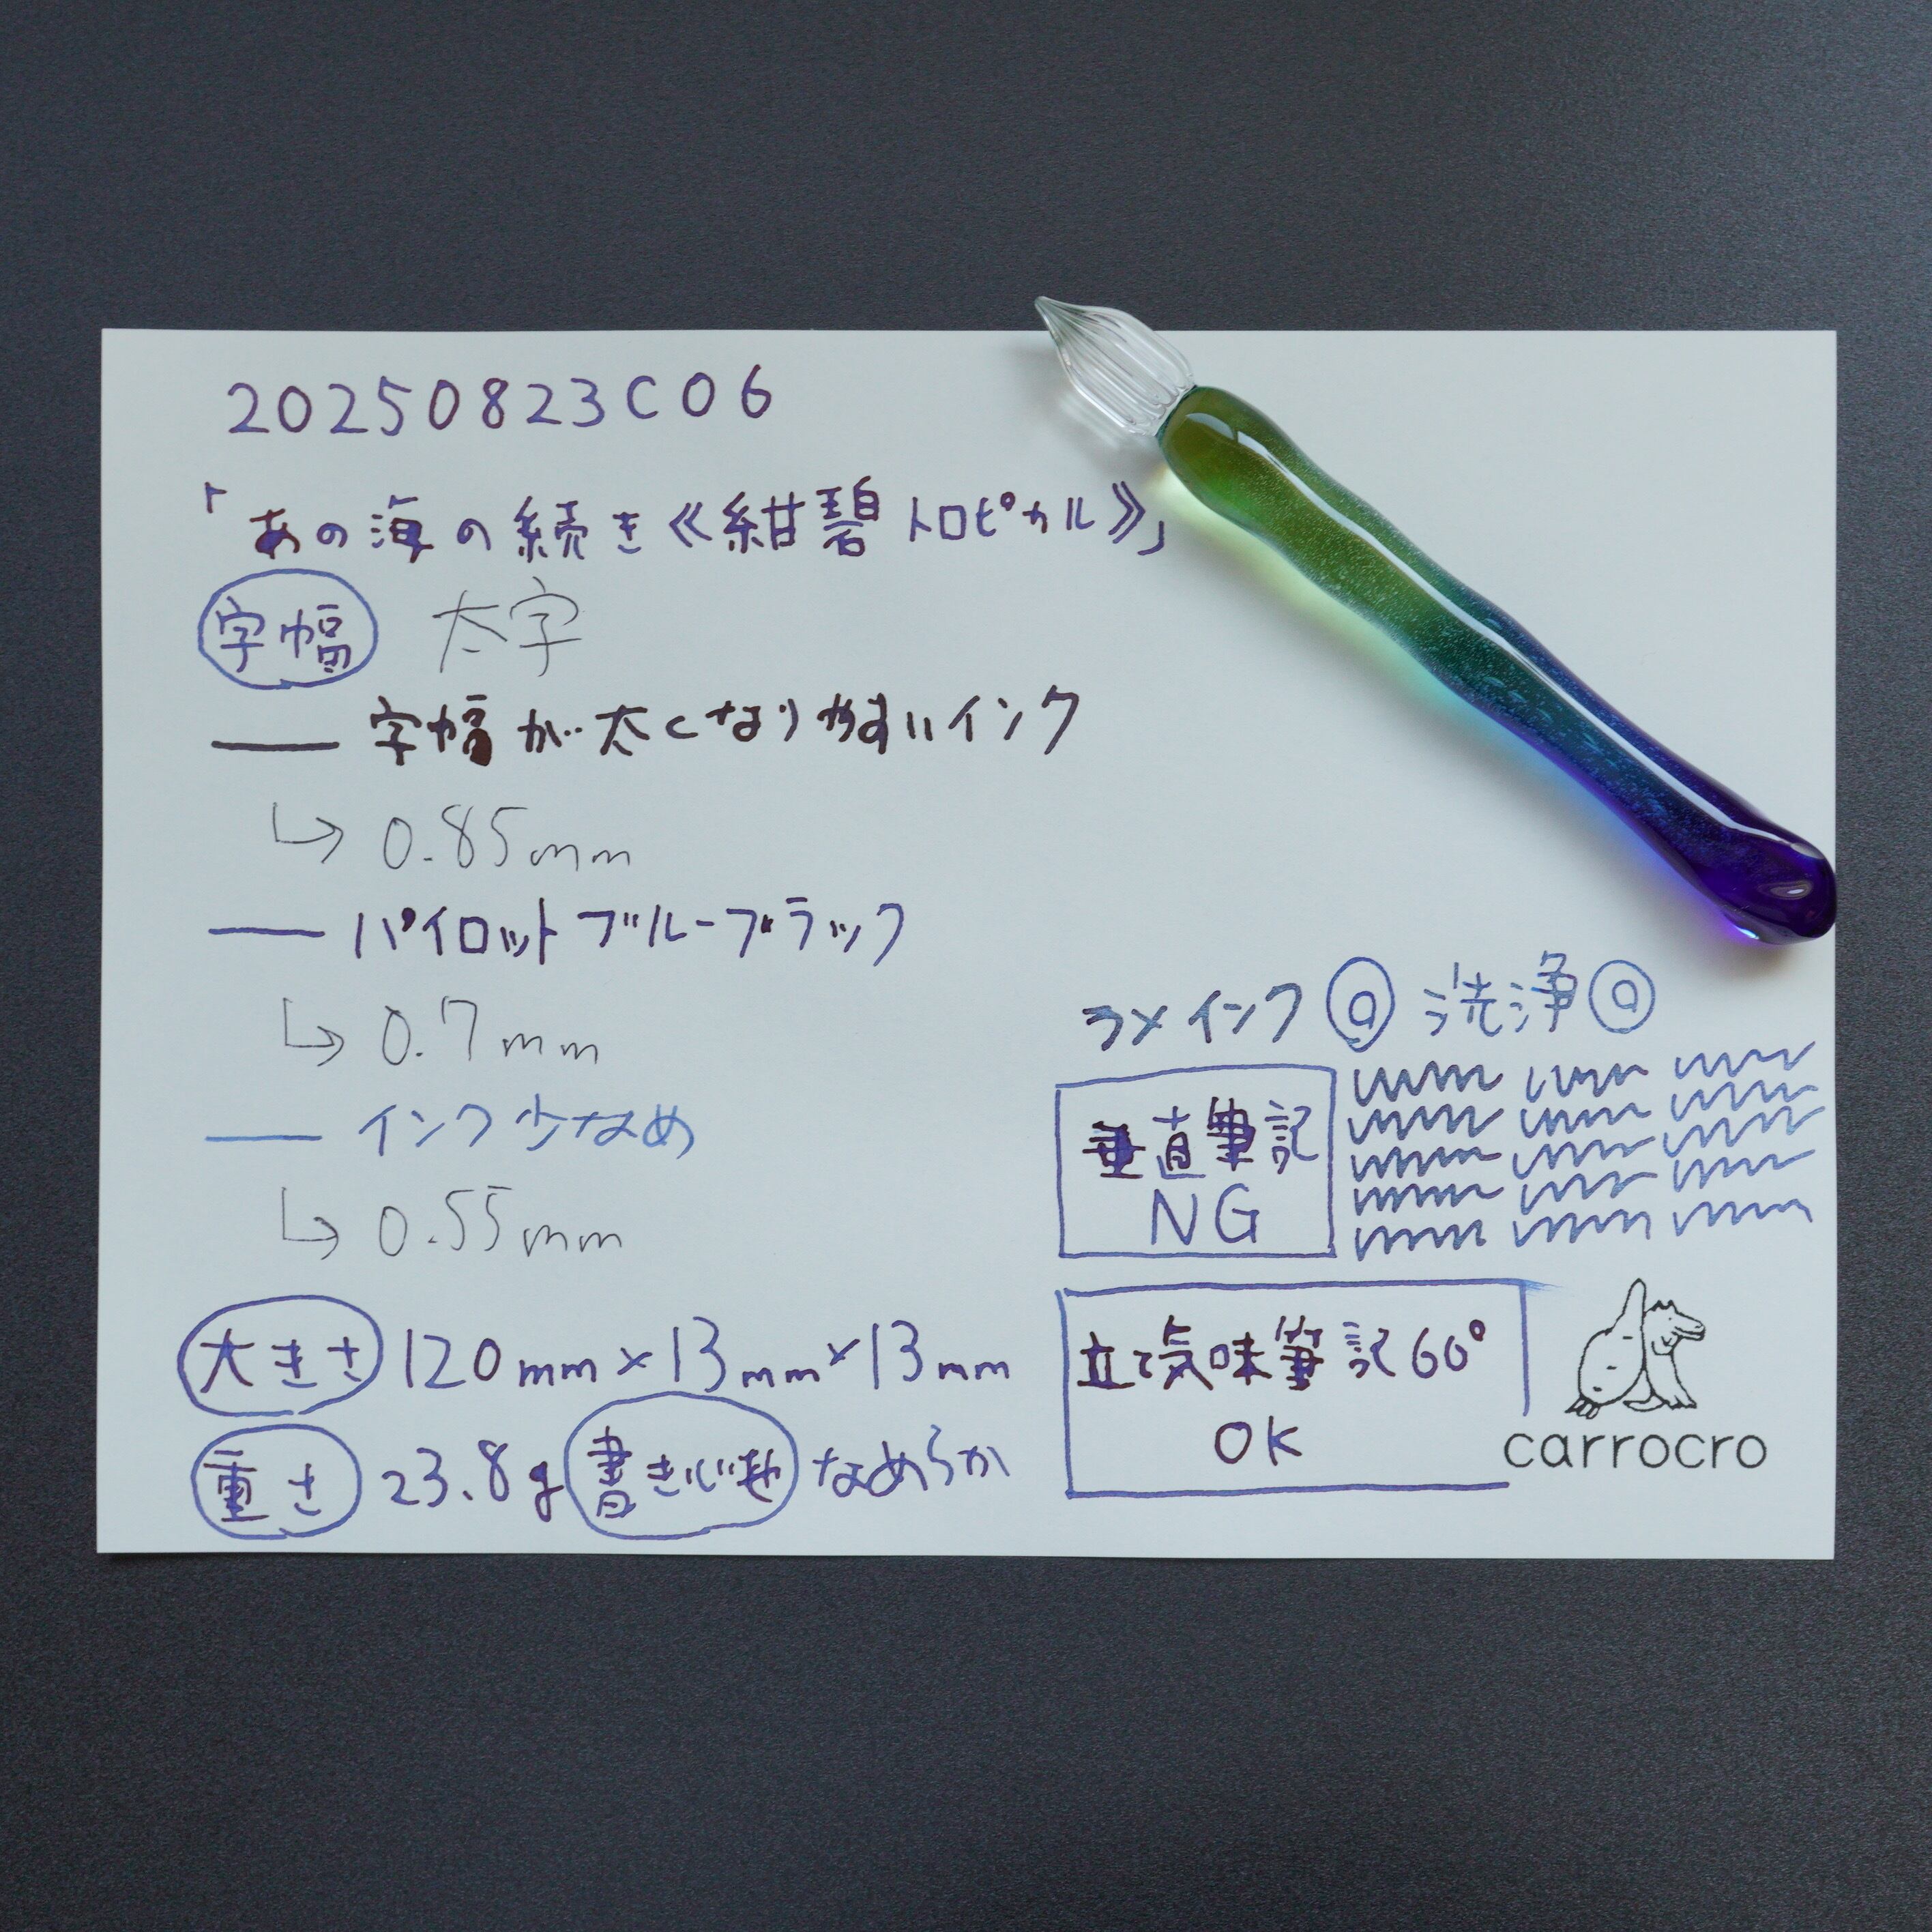 20250823C06
「あの海の続き《紺碧トロピカル》」
字幅 太字
字幅が太くなりやすいインク
0.85mm
パイロットブルーブラック
0.7mm
インク少なめ
0.55mm
大きさ 120mm×13mm×13mm
重さ 23.8g 書き心地 なめらか
ラメインク◎ 洗浄◎
垂直筆記
NG
立て気味筆記60°
OK
carrocro